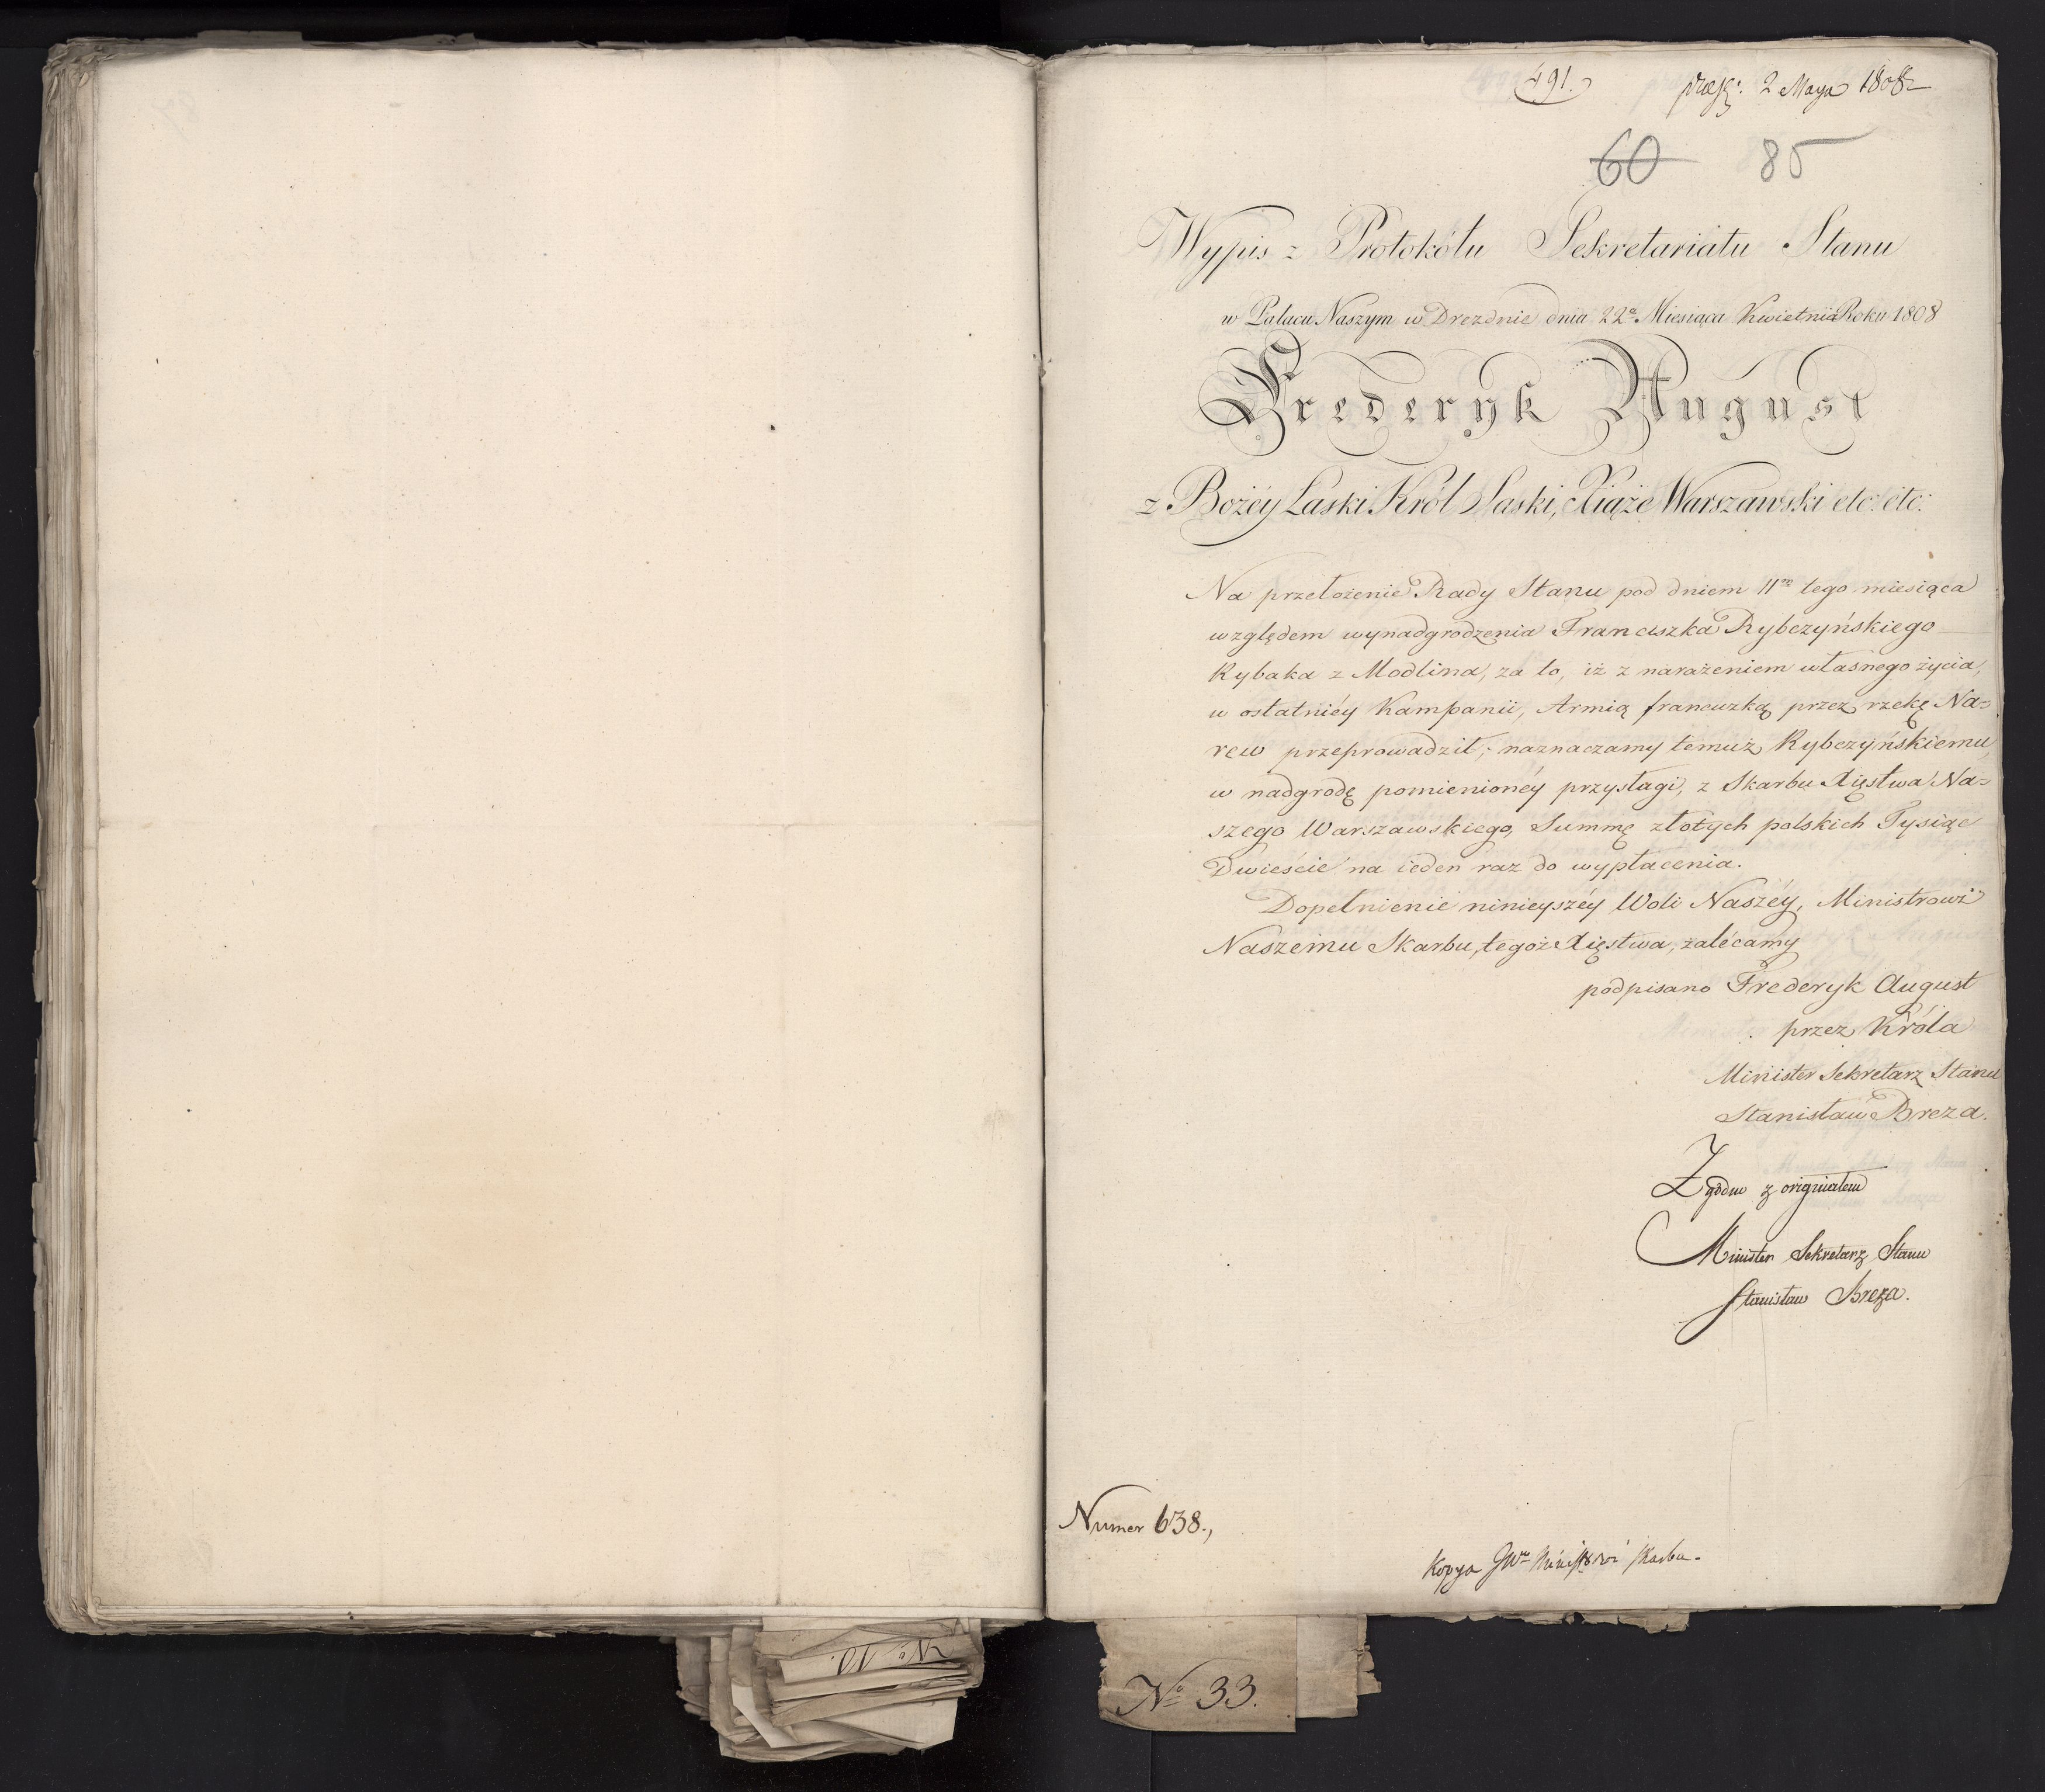 491.
præs: 2 Maya 1808
60 85
Wypis z Protokółu Sekretariatu Stanu
w Pałacu Naszym w Dreznie dnia 22º Miesiąca Kwietnia Roku 1808
Frederyk August
z Bożéy Łaski Król Saski, Xiąże Warszawski etc: etc:
Na przełożenie Rady Stanu pod dniem 11m tego miesiąca
względem wynadgrodzenia Franciszka Rybczyńskiego
Rybaka z Modlina, za to, iż z narażeniem własnego życia,
w ostatniéy Kampanii, Armią francuzką przez rzekę Na=
rew przeprowadził; naznaczamy temuż Rybczyńskiemu,
w nadgrodę pomienionéy przysługi, z Skarbu Xięstwa Na=
szego Warszawskiego, Summę złotych polskich Tysiąc
Dwieście na ieden raz do wypłacenia.
Dopełnienie ninieyszéy Woli Naszéy, Ministrowi
Naszemu Skarbu, tegoż Xięstwa, zalécamy
podpisano Frederyk August
przez Króla
Minister Sekretarz Stanu
Stanisław Breza.
Zgodno z originałem
Minister Sekretarz Stanu
Stanisław Breza.
Numer 638.,
Kopya JWu Ministrowi Skarbu.
No 10.
No 33.